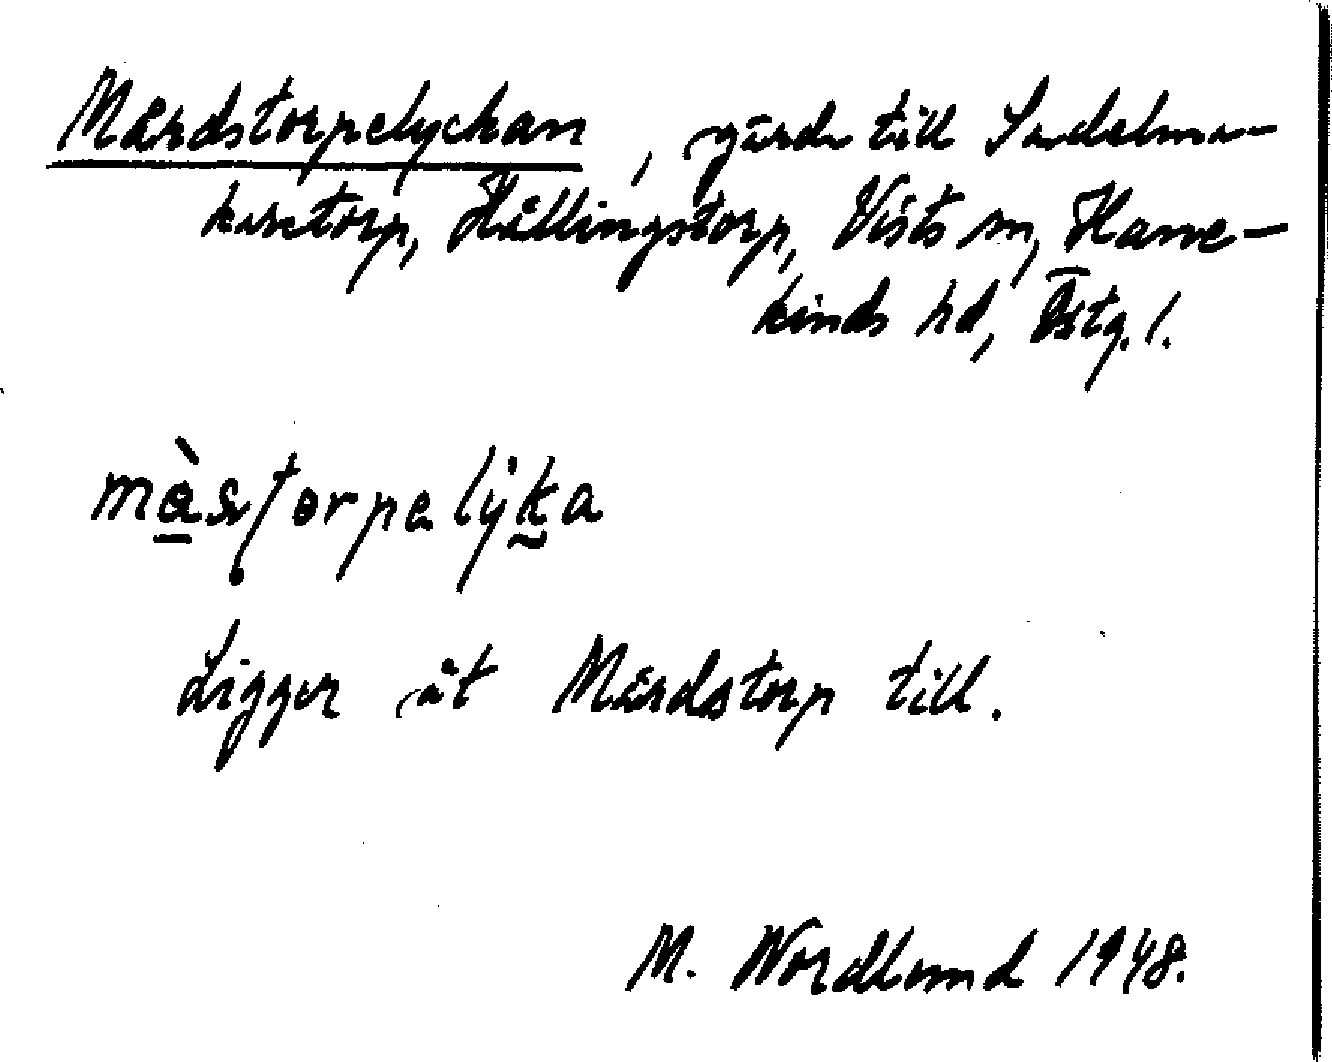 Mårdstorpelyckan, gärde till Sadelma-
karetorp, Hällingstorp, Vists sn, Hane-
kinds hd, Östg. l.
Ligger åt Mårdstorp till.
M. Nordlund 1948.